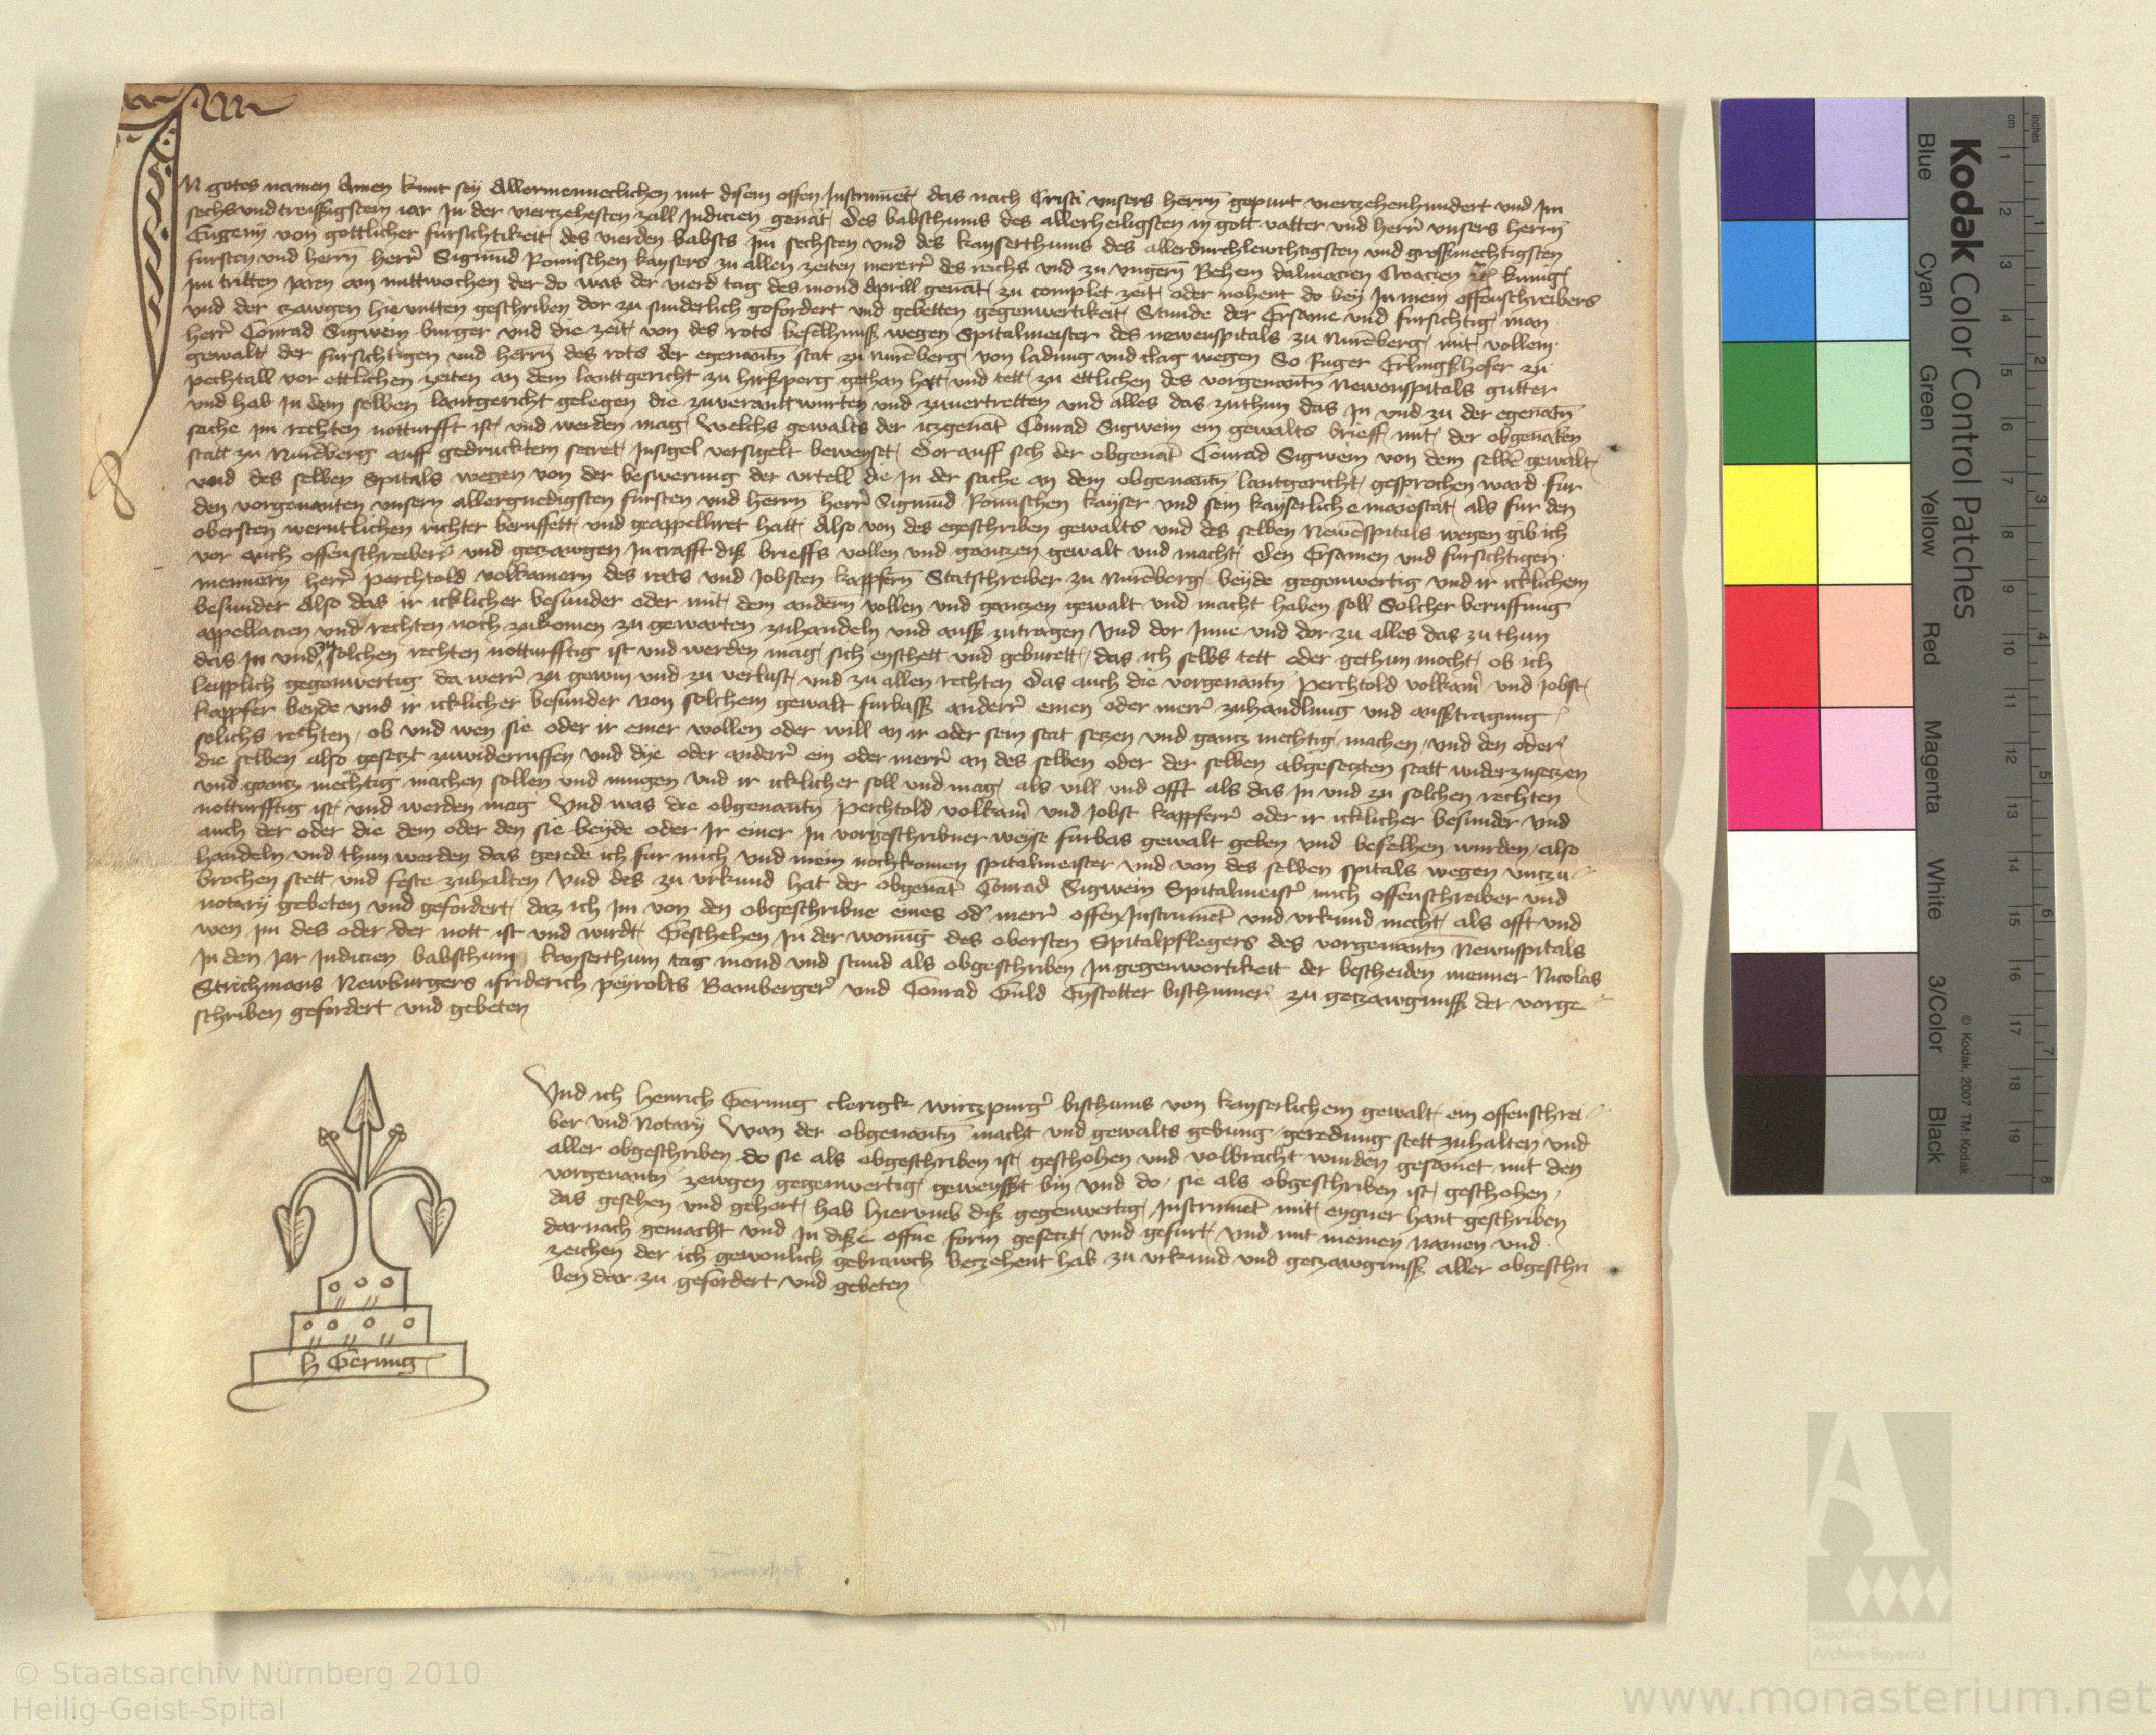 IN gotes namen Amen kunt sey Allermenneclichen mit disem offen Instrumēt das nach Cristi unsers herrn gepurt viertzehenhundert und Im
sechs und treissigstem iar In der viertzehesten zall Indicien genāt Des babsthums des allerheiligsten in gott vatter und herrn̄ unsers herrn
Eugenij von gottlicher fursichtikeit des vierden babsts Im sechsten und des kayserthums des allerdurchlewchtigsten und grossmechtigsten
fursten und herrn herrn̄ Sigmund Romischen kaysers zu allen zeiten merern̄ des reichs und zu ungern Behem dalmacien Croacien kunig
Im tritten Jaren am mittwochen der do was der vierd tag des mond Aprill genāt zu complet zeit oder nohent do bey In mein offenschreibers
und der czawgen hie unten geschriben dor zu sunderlich gefordert und gebetten gegenwertikeit Stunde der Ersame und fursichtig man
herr Conrad Sigwein burger und die zeit von des rots befelhnuss wegen Spitalmeister des newenspitals zu Nurēberg mit vollem
gewalt der fursichtigen und herrn des rots der egenantn̄ stat zu nurēberg von ladung und clag wegen So Fuger Erlingkhofer zu
pechtall vor ettlichen zeiten an dem lanttgericht zu hirsperg gethan hatt und tett zu ettlichen des vorgenantn̄ Newenspitals gutter
und hab In dem selben lantgericht gelegen die zuverantwurten und zuvertretten und alles das zuthun das In und zu der egenātn̄
sache im rechten notturfft ist und werden mag Welchs gewalts der iczgenāt Conrad Sigwein ein gewalts brieff mit der obgenāten
statt zu Nurēberg auff gedrucktem secret Insigel versigelt beweyset Dorauff sich der obgenāt Conrad Sigwein von dem selbē gewalt
und des selben Spitals wegen von der beswerung der urtell die In der sache an dem obgenantn̄ lantgericht gesprochen ward fur
den vorgenanten unsern allergnedigsten fursten und herrn herrn̄ Sigmund Romischen kayser und sein kayserliche maiestat als fur den
obersten werntlichen richter beruffett und geappelliret hatt Also von des egeschriben gewalts und des selben Newēspitals wegen gib ich
vor euch offenschreiber und getzawgen In crafft diß brieffs vollen und gantzen gewalt und macht Den Ersamen und fursichtigen
mennern herrn̄ perchtold volkamern des rats und Jobsten kappfern Statschreiber zu Nurēberg beyde gegenwertig und ir icklichem
besunder Also das ir icklicher besunder oder mit dem andern vollen und gantzen gewalt und macht haben soll Solcher beruffung
appellacien und rechten noch zukomen zu gewarten zuhandeln und auß zutragen Und dor Inne und dor zu alles das zu thun
das In und zu solchen rechten notturfftig ist und werden mag sich eyschett und geburett das ich selbs tett oder gethun mocht ob ich
leipplich gegenwertig da wern̄ zu gewin und zu verlust und zu allen rechten Das auch die vorgenantn̄ perchtold volkam̄ und Jobst
kappfer beyde und ir icklicher besunder von solchem gewalt furbass andern̄ einen oder merr zuhandlung und außtragung
solichs rechten ob und wen sie oder ir einer wollen oder will an ir oder sein stat setzen und gantz mechtig machen und den oder
die selben also gesetzt zuwiderruffen und dye oder andern̄ ein oder merr̄ an des selben oder der selben abgesetzten statt widerzusetzen
und gantz mechtig machen sollen und mugen und ir icklicher soll und mag als vill und offt als das In und zu solchen rechten
notturfftig ist und werden mag Und was die obgenantn̄ perchtold volkam̄ und Jobst kappferr oder ir icklicher besunder und
auch der oder die dem oder den sie beyde oder Ir einer In vorgeschribner weyse furbas gewalt geben und befelhen wurden also
handeln und thun werden das gerede ich fur mich und mein nochkomen spitalmeister und von des selben spitals wegen untzu-
brochen stett und feste zuhalten Und des zu urkund hat der obgenāt Conrad Sigwein Spitalmeist̄ mich offenschreiber und
notary gebeten und gefordert daz ich im von den obgeschribne eines od̄ merr̄ offen Instrumēt und urkund mecht als offt und
wen im des oder der nott ist und wirdt Geschehen In der wonūg des obersten Spitalpflegers des vorgenantn̄ Newnspitals
In den Jar Indicien babsthum kayserthum tag mond und stund als obgeschriben In gegenwertikeit der bescheiden menner Nicolas
Strichmans Newburgers ffriderich peyrolts Bambergerr̄ und Conrad Guld Eystetter bisthumer zu getzawgnuss der vorge-
schriben gefordert und gebeten
Und ich Henrich Gerung clerigk wirtzpurḡ bisthums von kayserlichem gewalt ein offenschrei-
ber und Notary Wan der obgenantn̄ macht und gewalts gebung geredung stett zuhalten und
aller obgeschriben do sie als obgeschriben ist geschohen und volbracht wurden gesamet mit den
vorgenantn̄ zewgen gegenwertig geweßt bin und do sie als obgeschriben ist geschohen
das gesehen und gehort hab Hierumb diß gegenwertig Instrumēt mit eygner hant geschriben
darnach gemacht und In diße offne form gesetzt und gefurt und mit meinen namen und
zeichen der ich gewonlich gebrawch betzehent hab zu urkund und getzawgnuss aller obgeschri
ben dar zu gefordert und gebeten
h Gerung
Kodak Color Control Patches
Blue Cyan Green Yellow Red Magenta White 3/Color Black
© Kodak, 2007 TM: Kodak
inches 1 2 3 4 5 6 7 8
cm 1 2 3 4 5 6 7 8 9 10 11 12 13 14 15 16 17 18 19
Staatliche
Archive Bayerns
© Staatsarchiv Nürnberg 2010
Heilig-Geist-Spital
www.monasterium.net